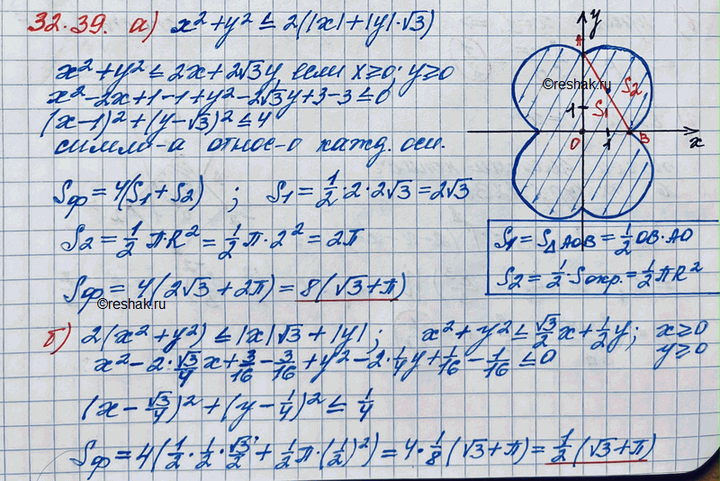 32.39. а) x²+y² ≤ 2(|x|+|y|·√3)
x²+y² ≤ 2x+2√3y, если x≥0; y≥0
x²-2x+1-1+y²-2√3y+3-3≤0
(x-1)²+(y-√3)² ≤ 4
симм-а относ-о кажд. оси.
Sф = 4(S₁+S₂) ; S₁ = 1/2·2·2√3 = 2√3
S₂ = 1/2 π·R² = 1/2 π·2² = 2π
Sф = 4(2√3+2π) = 8(√3+π)
©reshak.ru
y
A
©reshak.ru
S₂
1
S₁
O
1
B
x
S₁ = S△AOB = 1/2 OB·AO
S₂ = 1/2·Sокр. = 1/2 πR²
б) 2(x²+y²) ≤ |x|√3+|y|; x²+y² ≤ √3/2 x+1/2 y; x≥0
y≥0
x²-2·√3/4 x+3/16-3/16+y²-2·1/4 y+1/16-1/16 ≤0
(x-√3/4)²+(y-1/4)² ≤ 1/4
Sф = 4(1/2·1/2·√3/2+1/2 π·(1/2)²) = 4·1/8(√3+π) = 1/2(√3+π)